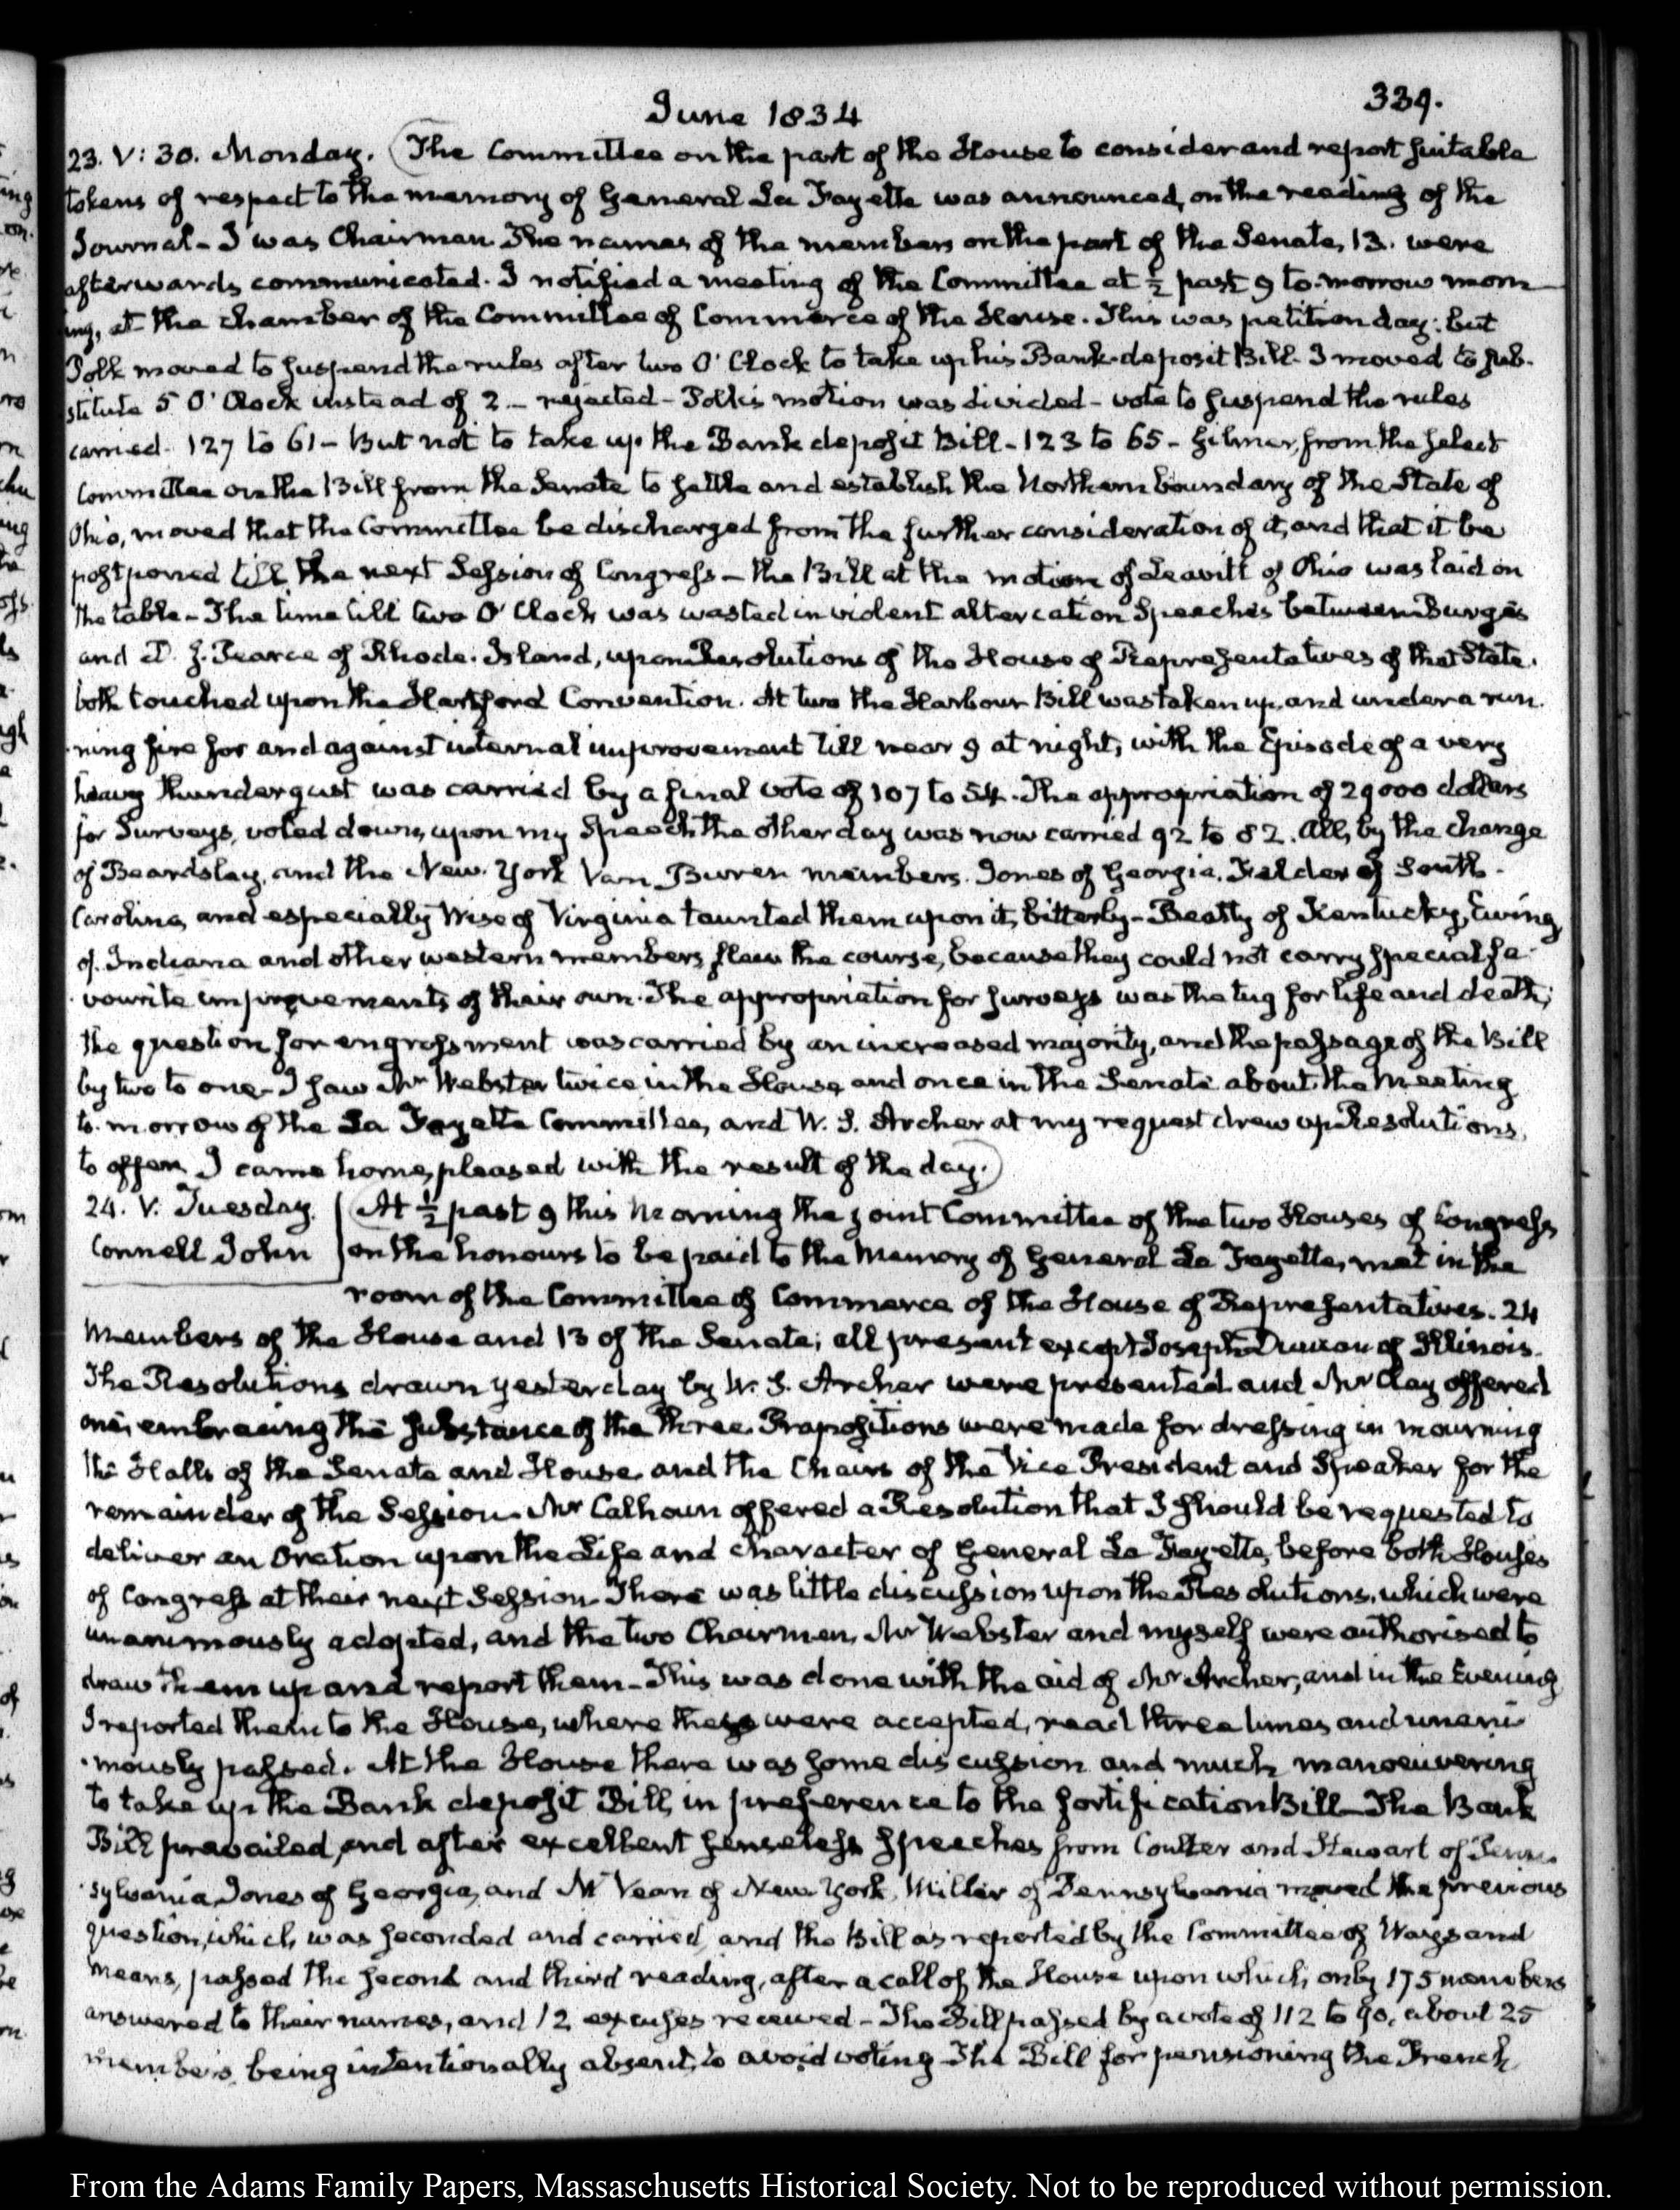 June 1834
339.
23. V: 30. Monday. (The Committee on the part of the House to consider and report suitable
tokens of respect to the memory of General La Fayette was announced, on the reading of the
Journal - I was Chairman. The names of the members on the part of the Senate, 13. were
afterwards communicated. I notified a meeting of the Committee at ½ past 9 to-morrow morn
ing, at the chamber of the Committee of Commerce of the House. This was petition day: but
Polk moved to suspend the rules after two O'Clock to take up his Bank-deposit Bill. I moved to sub-
stitute 5 O'Clock instead of 2 - rejected - Polk's motion was divided - vote to suspend the rules
carried. 127 to 61 - But not to take up the Bank deposit Bill - 123 to 65 - Gilmer, from the select
Committee on the Bill from the Senate to settle and establish the Northern boundary of the State of
Ohio, moved that the Committee be discharged from the further consideration of it, and that it be
postponed till the next Session of Congress - the Bill at the motion of Leavitt of Ohio was laid on
the table - The time till two O'Clock was wasted in violent altercation Speeches between Burges
and D. J. Pearce of Rhode-Island, upon Resolutions of the House of Representatives of that State.
both touched upon the Hartford Convention. At two the Harbour Bill was taken up, and under a run-
ning fire for and against internal improvement till near 9 at night, with the Episode of a very
heavy thundergust was carried by a final vote of 107 to 54. The appropriation of 29000 dollars
for Surveys, voted down, upon my Speech the other day was now carried 92 to 82. All, by the change
of Beardsley, and the New-York Van Buren members. Jones of Georgia. Felder of South-
Carolina, and especially Wise of Virginia taunted them upon it, bitterly - Beatty of Kentucky, Ewing
of Indiana and other western members flew the course, because they could not carry special fa-
vourite improvements of their own. The appropriation for surveys was the tug for life and death;
the question for engrossment was carried by an increased majority, and the passage of the Bill
by two to one - I saw Mr Webster twice in the House, and once in the Senate about the meeting
to-morrow of the La Fayette Committee, and W. S. Archer at my request drew up Resolutions,
to offer. I came home, pleased with the result of the day.)
24. V. Tuesday.
Connell John
(At ½ past 9 this Morning the joint Committee of the two Houses of Congress
on the honours to be paid to the Memory of General La Fayette, met in the
room of the Committee of Commerce of the House of Representatives. 24
Members of the House and 13 of the Senate; all present except Joseph Duncan of Illinois.
The Resolutions drawn yesterday by W. S. Archer were presented and Mr Clay offered
one, embracing the substance of the three. Propositions were made for dressing in mourning
the Halls of the Senate and House, and the Chairs of the Vice President and Speaker for the
remainder of the Session. Mr Calhoun offered a Resolution that I should be requested to
deliver an Oration upon the Life and character of General La Fayette, before both Houses
of Congress at their next Session. There was little discussion upon the Resolutions, which were
unanimously adopted, and the two Chairmen, Mr Webster and myself were authorised to
draw them up and report them - This was done with the aid of Mr Archer, and in the Evening
I reported them to the House, where they were accepted, read three times and unani
mously passed. At the House there was some discussion and much manoeuvering
to take up the Bank deposit Bill, in preference to the fortification Bill - The Bank
Bill prevailed, and after excellent senseless speeches from Coulter and Stewart of Penn-
sylvania, Jones of Georgia, and McVean of New York, Miller of Pennsylvania moved the previous
question, which was seconded and carried, and the Bill as reported by the Committee of Ways and
Means, passed the second and third reading, after a call of the House upon which only 175 members
answered to their names, and 12 excuses received - The Bill passed by a vote of 112 to 90, about 25
members, being intentionally absent, to avoid voting. The Bill for pensioning the French
From the Adams Family Papers, Massachusetts Historical Society. Not to be reproduced without permission.